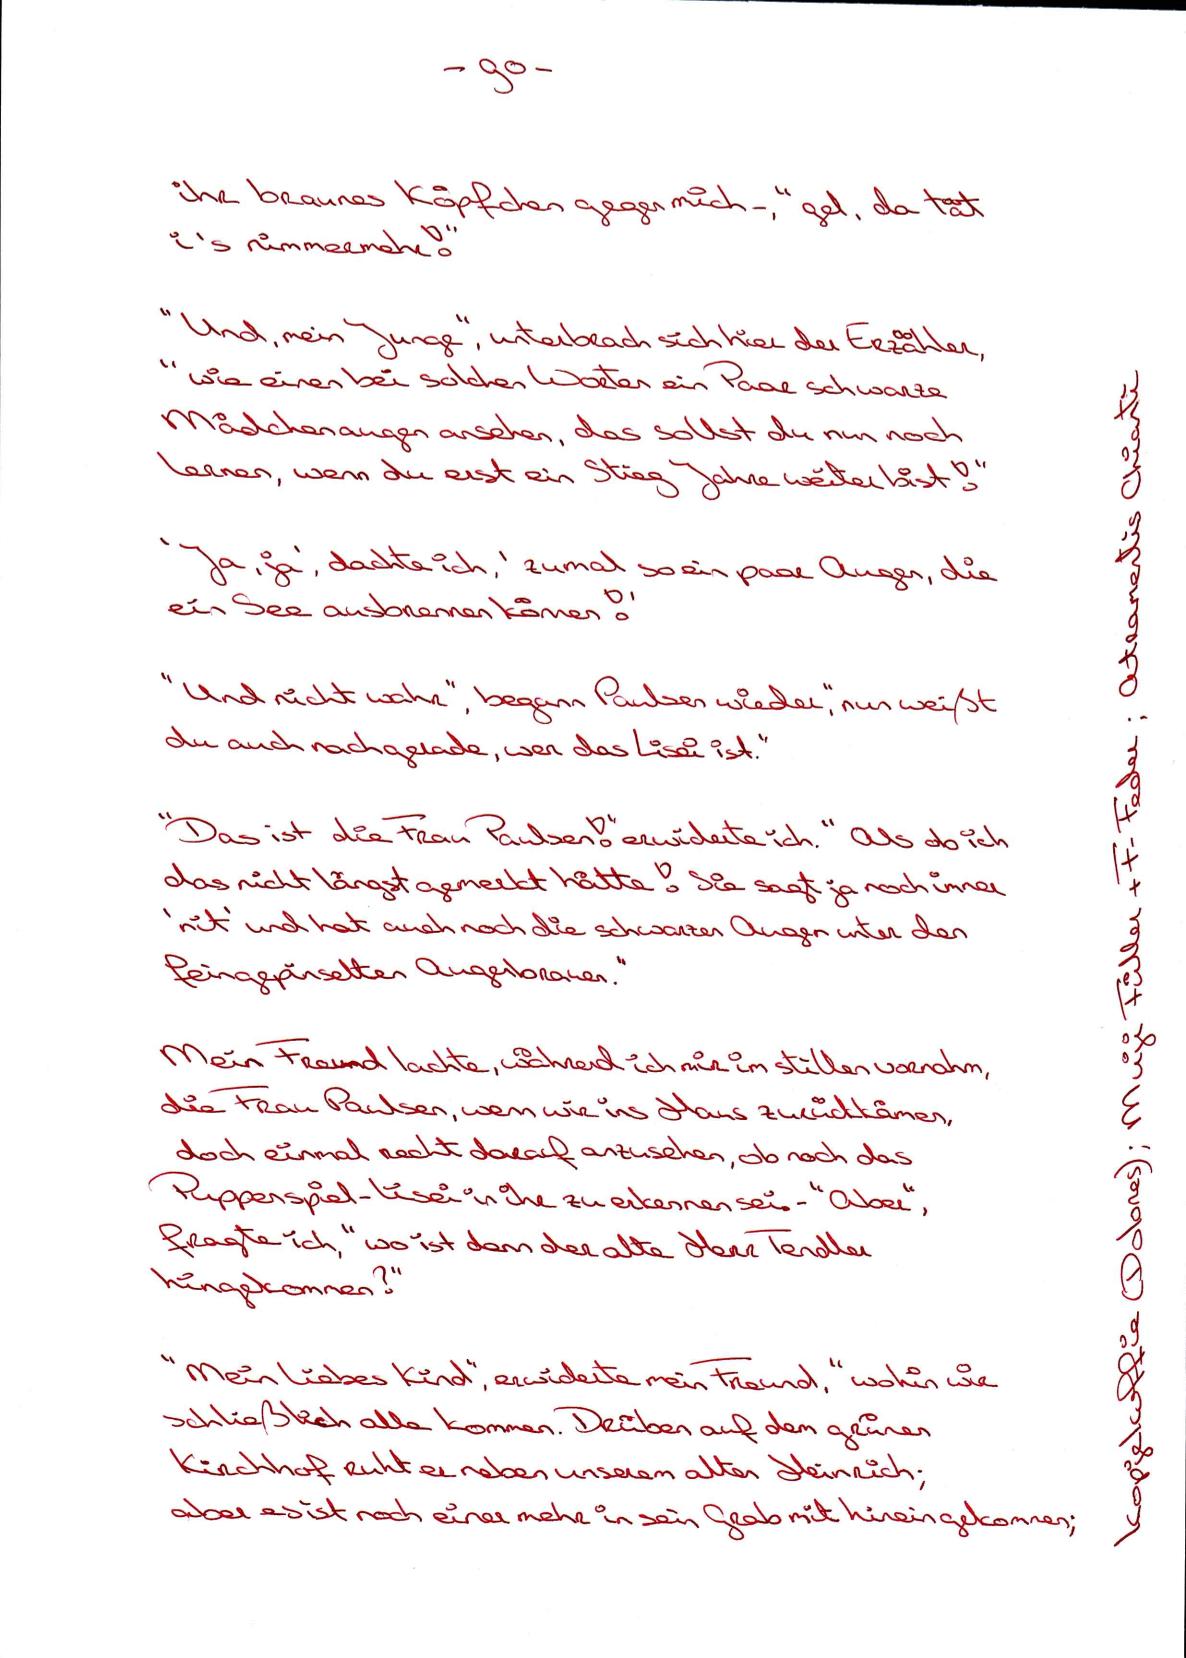 - 90 -
ihr braunes Köpfchen gegen mich -, "gel, da tät
i's nimmermehr!"
"Und, mein Junge", unterbrach sich hier der Erzähler,
"wie einen bei solchen Worten ein Paar schwarze
Mädchenaugen ansehen, das sollst du nun noch
lernen, wenn du erst ein Stieg Jahre weiter bist!"
'Ja, ja', dachte ich, 'zumal so ein paar Augen, die
ein See ausbrennen können!'
"Und nicht wahr", begann Paulsen wieder, "nun weißt
du auch nachgerade, wer das Lisei ist."
"Das ist die Frau Paulsen!" erwiderte ich. "Als ob ich
das nicht längst gemerkt hätte! Sie sagt ja noch immer
'nit' und hat auch noch die schwarzen Augen unter den
feingepinselten Augenbrauen."
Mein Freund lachte, während ich mir im stillen vornahm,
die Frau Paulsen, wenn wir ins Haus zurückkämen,
doch einmal recht darauf anzusehen, ob noch das
Puppenspiel-Lisei in ihr zu erkennen sei. - "Aber",
fragte ich, "wo ist denn der alte Herr Tendler
hingekommen?"
"Mein liebes Kind", erwiderte mein Freund, "wohin wir
schließlich alle kommen. Drüben auf dem grünen
Kirchhof ruht er neben unserem alten Heinrich;
aber es ist noch einer mehr in sein Grab mit hineingekommen;
Kopierkaffie (Dohnes); Muji Füller + F-Feder; Atramentis Chianti